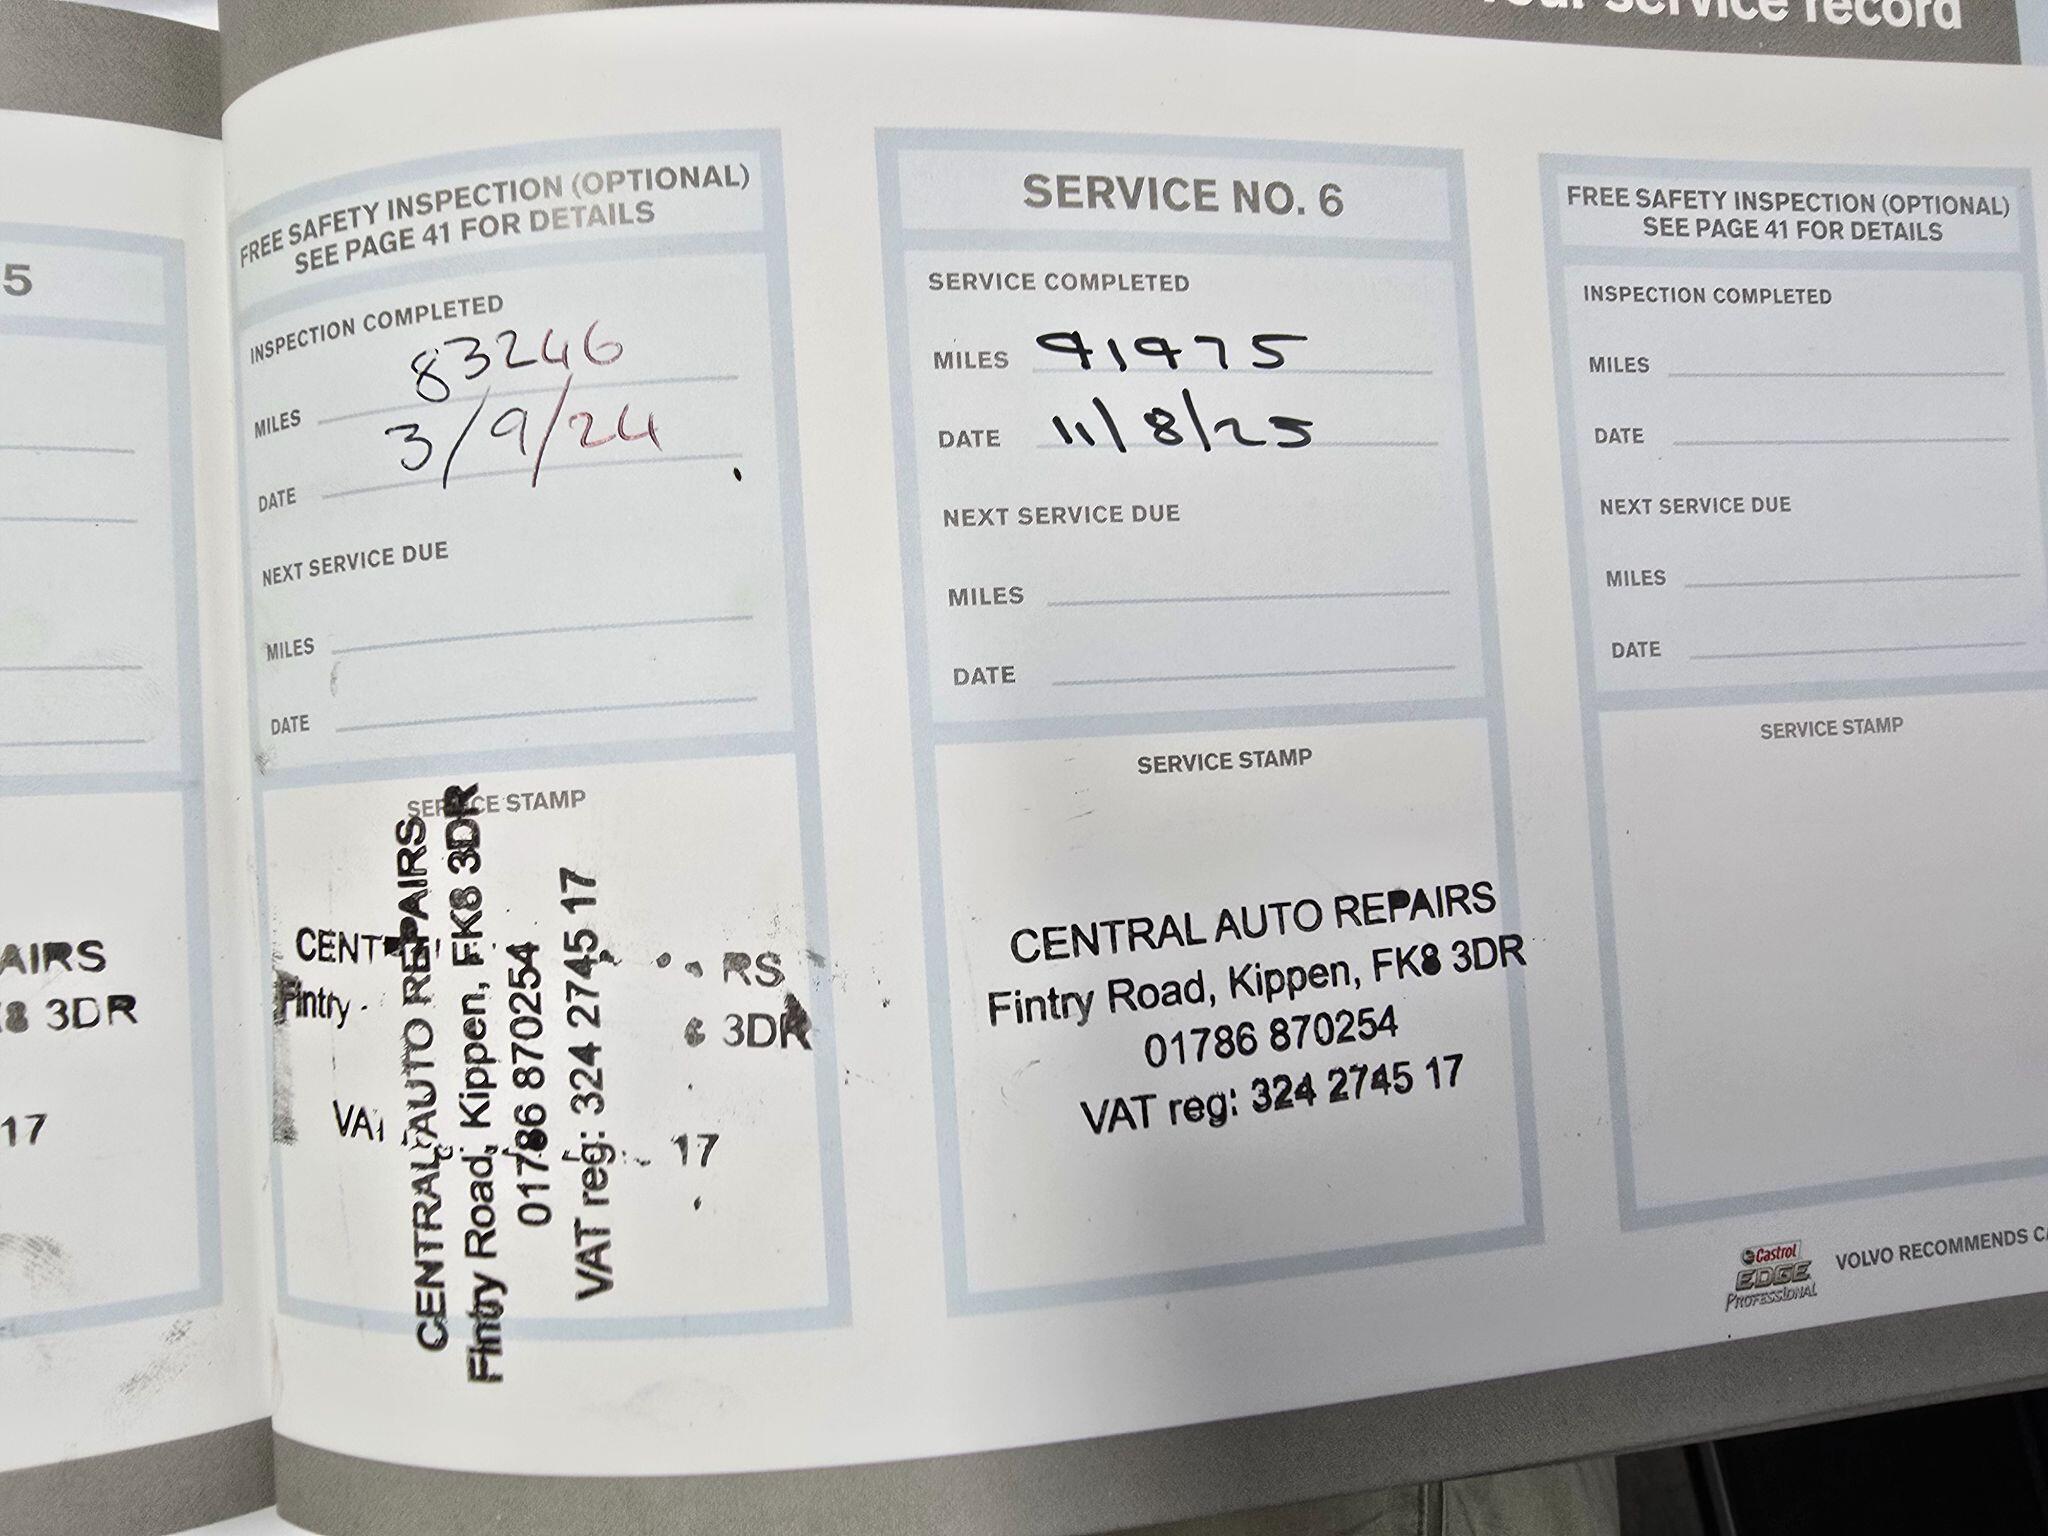 our service record
5
AIRS
8 3DR
17
FREE SAFETY INSPECTION (OPTIONAL)
SEE PAGE 41 FOR DETAILS
INSPECTION COMPLETED
MILES 83246
DATE 3/9/24
NEXT SERVICE DUE
MILES
DATE
SERVICE STAMP
CENTRAL AUTO REPAIRS
Fintry Road, Kippen, FK8 3DR
01786 870254
VAT reg: 324 2745 17
CENT RS
Fintry 3DR
VAT 17
SERVICE NO. 6
SERVICE COMPLETED
MILES 91975
DATE 11/8/25
NEXT SERVICE DUE
MILES
DATE
SERVICE STAMP
CENTRAL AUTO REPAIRS
Fintry Road, Kippen, FK8 3DR
01786 870254
VAT reg: 324 2745 17
FREE SAFETY INSPECTION (OPTIONAL)
SEE PAGE 41 FOR DETAILS
INSPECTION COMPLETED
MILES
DATE
NEXT SERVICE DUE
MILES
DATE
SERVICE STAMP
Castrol
EDGE
PROFESSIONAL
VOLVO RECOMMENDS CA